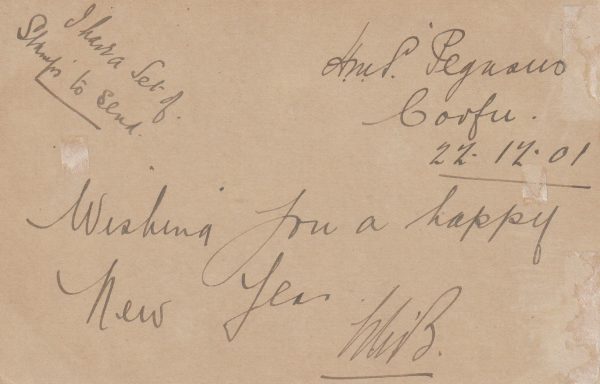 I have a Set of.
Stamps to send.
H.M.S. Pegasus
Corfu.
22.12.01
Wishing you a happy
New Year